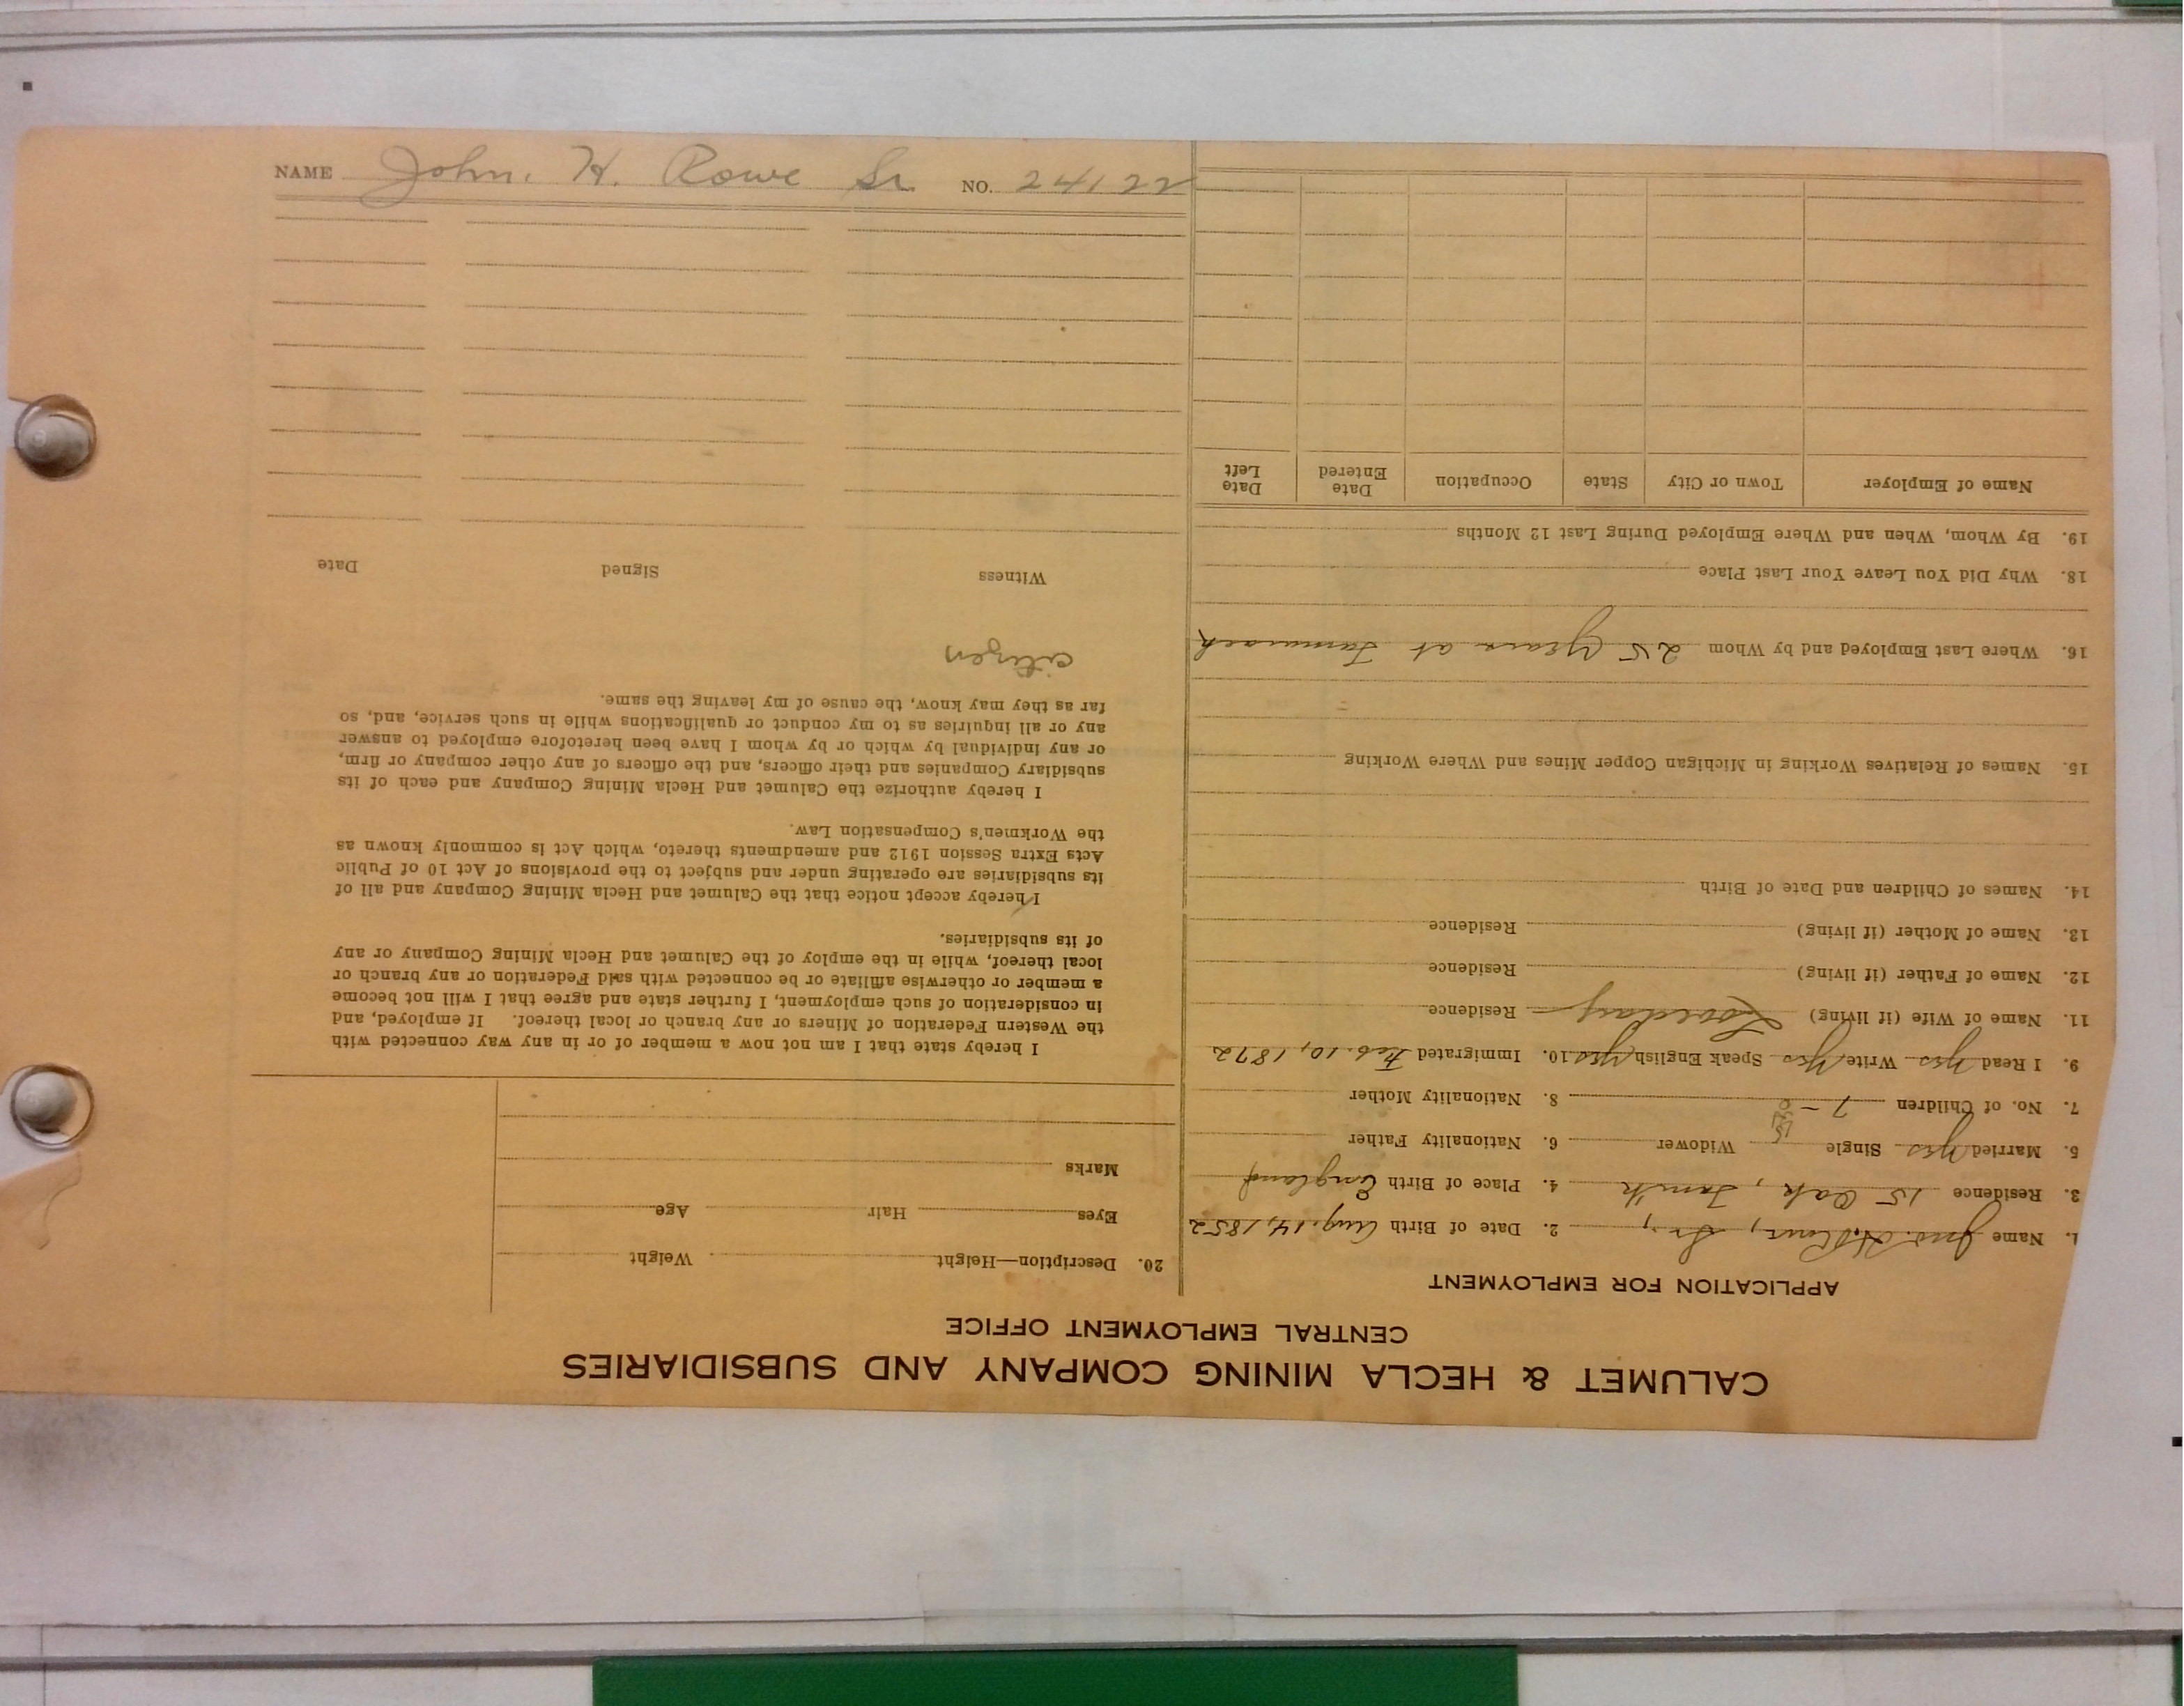 NAME John. H. Rowe Sr. NO. 24122
CALUMET & HECLA MINING COMPANY AND SUBSIDIARIES
CENTRAL EMPLOYMENT OFFICE
APPLICATION FOR EMPLOYMENT
1. Name Jno. H. Rowe, Sr., 2. Date of Birth Aug. 14, 1852
3. Residence 15 Oak, Tam'k 4. Place of Birth England
5. Married Yes Single Widower 6. Nationality Father
7. No. of Children 7 - 8. Nationality Mother
9. I Read Yes Write Yes Speak English Yes 10. Immigrated Feb. 10, 1872
11. Name of Wife (if living) Loveday Residence
12. Name of Father (if living) Residence
13. Name of Mother (if living) Residence
14. Names of Children and Date of Birth
15. Names of Relatives Working in Michigan Copper Mines and Where Working
16. Where Last Employed and by Whom 25 Years at Tamarack
18. Why Did You Leave Your Last Place
19. By Whom, When and Where Employed During Last 12 Months
Name of Employer Town or City State Occupation Date Entered Date Left
20. Description—Height Weight
Eyes Hair Age
Marks
I hereby state that I am not now a member of or in any way connected with
the Western Federation of Miners or any branch or local thereof. If employed, and
in consideration of such employment, I further state and agree that I will not become
a member or otherwise affiliate or be connected with said Federation or any branch or
local thereof, while in the employ of the Calumet and Hecla Mining Company or any
of its subsidiaries.
I hereby accept notice that the Calumet and Hecla Mining Company and all of
its subsidiaries are operating under and subject to the provisions of Act 10 of Public
Acts Extra Session 1912 and amendments thereto, which Act is commonly known as
the Workmen's Compensation Law.
I hereby authorize the Calumet and Hecla Mining Company and each of its
subsidiary Companies and their officers, and the officers of any other company or firm,
or any individual by which or by whom I have been heretofore employed to answer
any or all inquiries as to my conduct or qualifications while in such service, and, so
far as they may know, the cause of my leaving the same.
citizen
Witness Signed Date